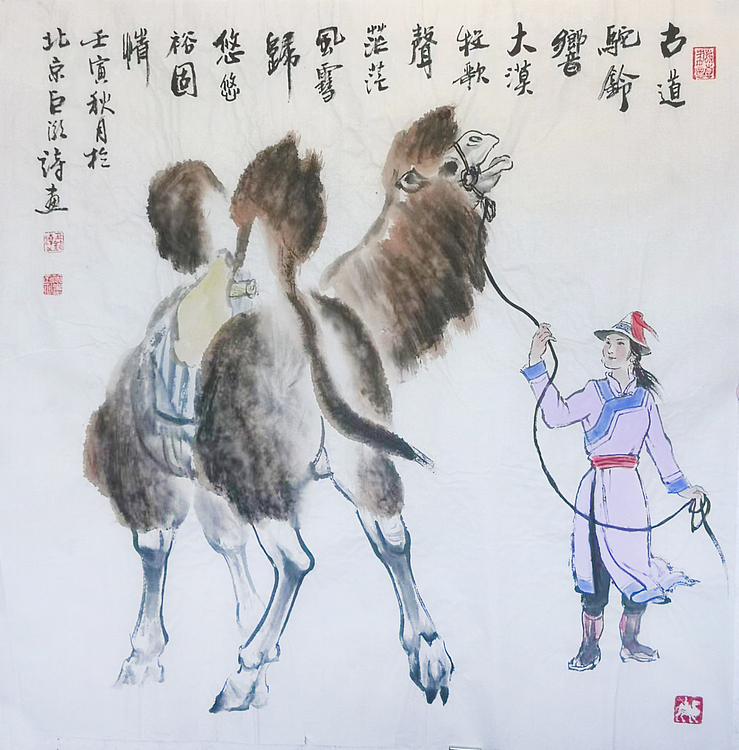 古道
駝鈴
響
大漠
牧歌
聲
茫茫
風雪
歸
悠悠
裕固
情
壬寅秋月於
北京巨詩畫